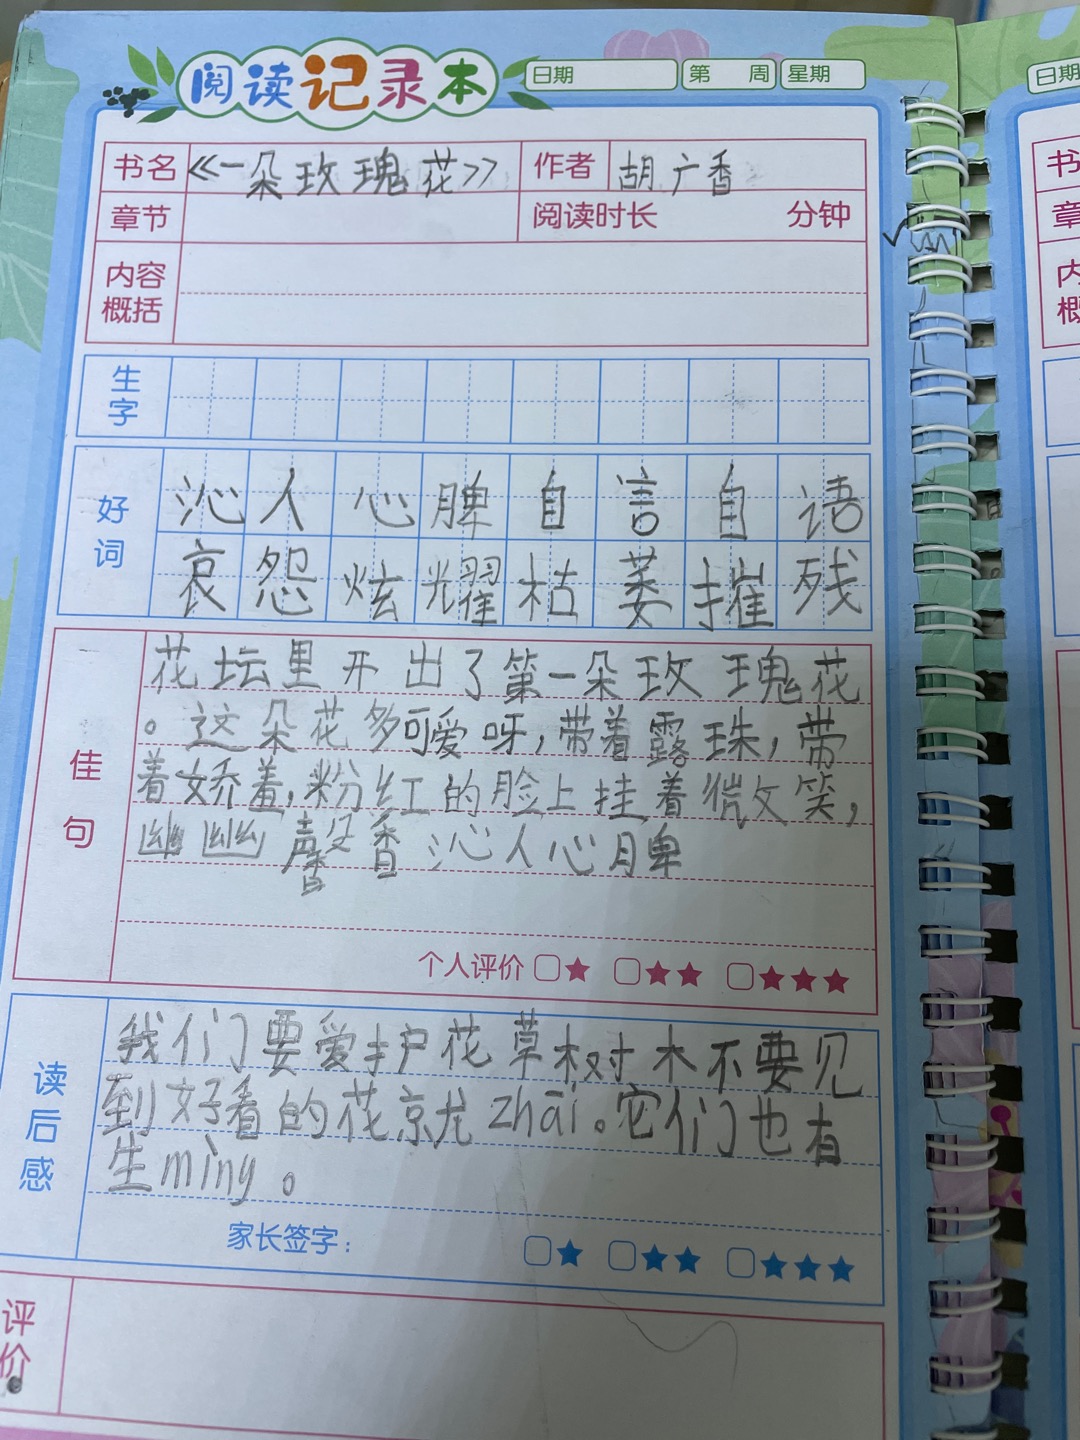 阅读记录本 日期 第 周 星期
书名 《一朵玫瑰花》 作者 胡广香
章节 阅读时长 分钟
内容概括
生字
好词
沁人心脾自言自语
哀怨炫耀枯萎摧残
佳句
花坛里开出了第一朵玫瑰花
。这朵花多可爱呀,带着露珠,带
着娇羞,粉红的脸上挂着微笑,
幽幽馨香沁人心脾
个人评价 ★ ★★ ★★★
读后感
我们要爱护花草树木不要见
到好看的花京尤zhāi。它们也有
生mìng。
家长签字: ★ ★★ ★★★
评价
日期
书
章
内
概